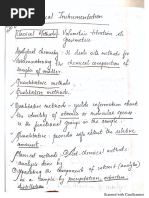 ical Instrumentation
Classical Methods: Volumetric titrations &
gravimetric
Analytical chemistry - It deals with methods for
determining the chemical composition of
samples of matter.
Quantitative methods
Qualitative methods.
Qualitative methods - yields information about
the identity of atomic or molecular species
or the functional groups in the sample.
Quantitative - provides info about the relative
amount.
Classical methods - chemical methods
analysis is done by
components of interest (analytes)
in a sample by precipitation, extraction
distillation
Scanned with CamScanner